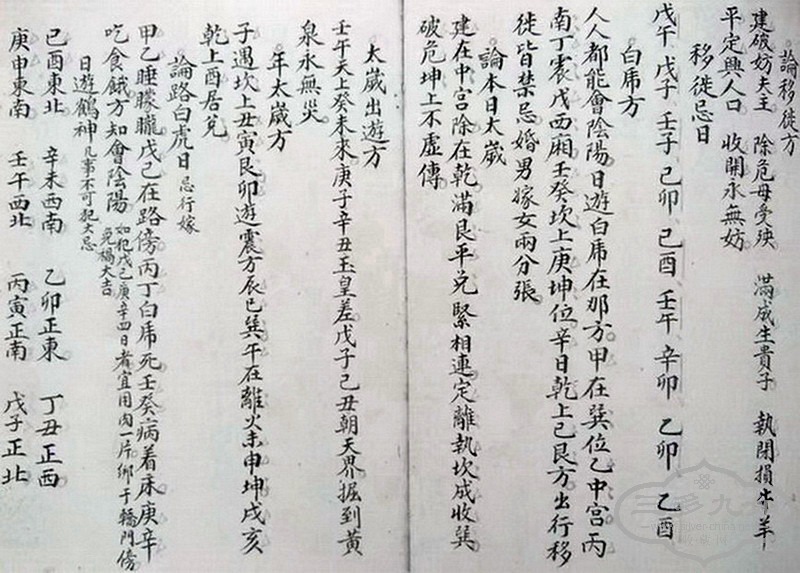 論移徙方
建破妨夫主 除危母受殃 滿成生貴子 執閉損牛羊
平定興人口 收開永無妨
移徙忌日
戊午 戊子 壬子 己卯 己酉 壬午 辛卯 乙卯 乙酉
白虎方
人人都能會陰陽日遊白虎在那方甲在巽位乙中宮丙
南丁震戊西廂壬癸坎上庚坤位辛日乾上己艮方出行移
徙皆禁忌婚男嫁女兩分張
論本日太歲
建在中宮除在乾滿艮平兌緊相連定離執坎成收巽
破危坤上不虛傳
太歲出遊方
壬午天上癸未來庚子辛丑玉皇差戊子己丑朝天界掘到黃
泉永無災
年太歲方
子遇坎上丑寅艮卯遊震方辰巳巽午在離火未申坤戌亥
乾上酉居兌
論路白虎日 忌行嫁
甲乙睡朦朧戊己在路傍丙丁白虎死壬癸病着床庚辛
吃食餓方知會陰陽 如犯戊己庚辛四日者宜用肉一片綁于轎門傍
免禍大吉
日遊鶴神 凡事不可犯大忌
己酉東北 辛未西南 乙卯正東 丁丑正西
庚申東南 壬午西北 丙寅正南 戊子正北